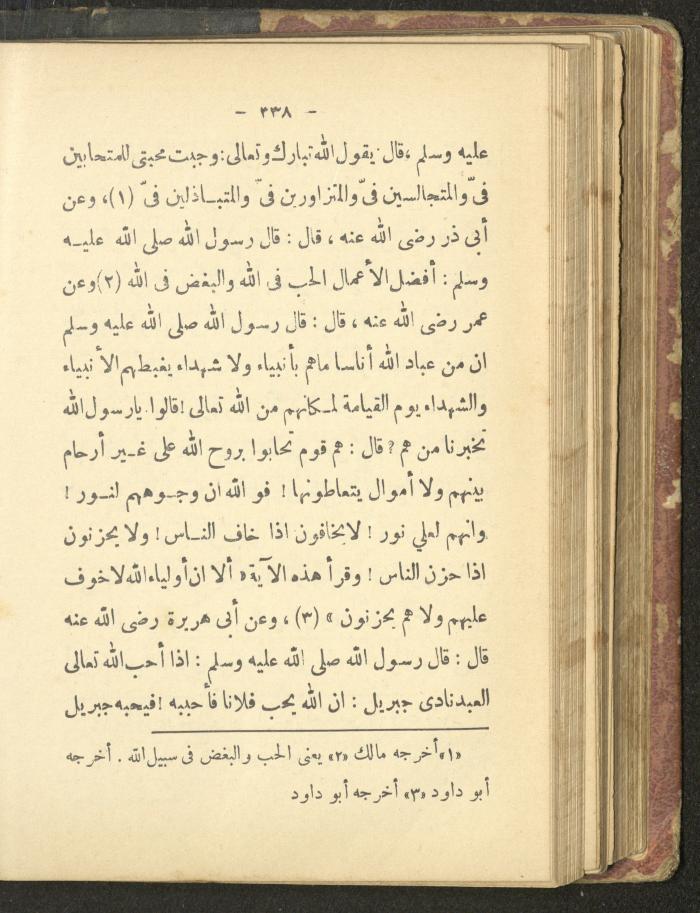 - ٣٣٨ -
عليه وسلم ،قال يقول الله تبارك وتعالى: وجبت محبتى للمتحابين
فىّ والمتجالسين فىّ والمتزاورين فىّ والمتبـاذلين فىّ (١)، وعن
أبى ذر رضى الله عنه ، قال : قال رسول الله صلى الله عليـه
وسلم : أفضل الأعمال الحب فى الله والبغض فى الله (٢) وعن
عمر رضى الله عنه ، قال : قال رسول الله صلى الله عليه وسلم
ان من عباد الله أناسا ماهم بأنبياء ولا شهداء يغبطهم الأنبياء
والشهداء يوم القيامة لمـكانهم من الله تعالى !قالوا. يارسول الله
تخبرنا من هم ? قال : هم قوم تحابوا بروح الله على غـير أرحام
بينهم ولا أموال يتعاطونها ! فو الله ان وجـوههم لنـور !
وانهم لعلي نور ! لايخافون اذا خاف النـاس ! ولا يحزنون
اذا حزن الناس ! وقرأ هذه الآية « ألا ان أولياء الله لا خوف
عليهم ولا هم يحزنون » (٣) ، وعن أبى هريرة رضى الله عنه
قال : قال رسول الله صلى الله عليه وسلم : اذا أحب الله تعالى
العبدنادى جبريل : ان الله يحب فلانا فأحببه !فيحبه جبريل
«١» أخرجه مالك «٢» يعنى الحب والبغض فى سبيل الله . أخرجه
أبو داود «٣» أخرجه أبو داود